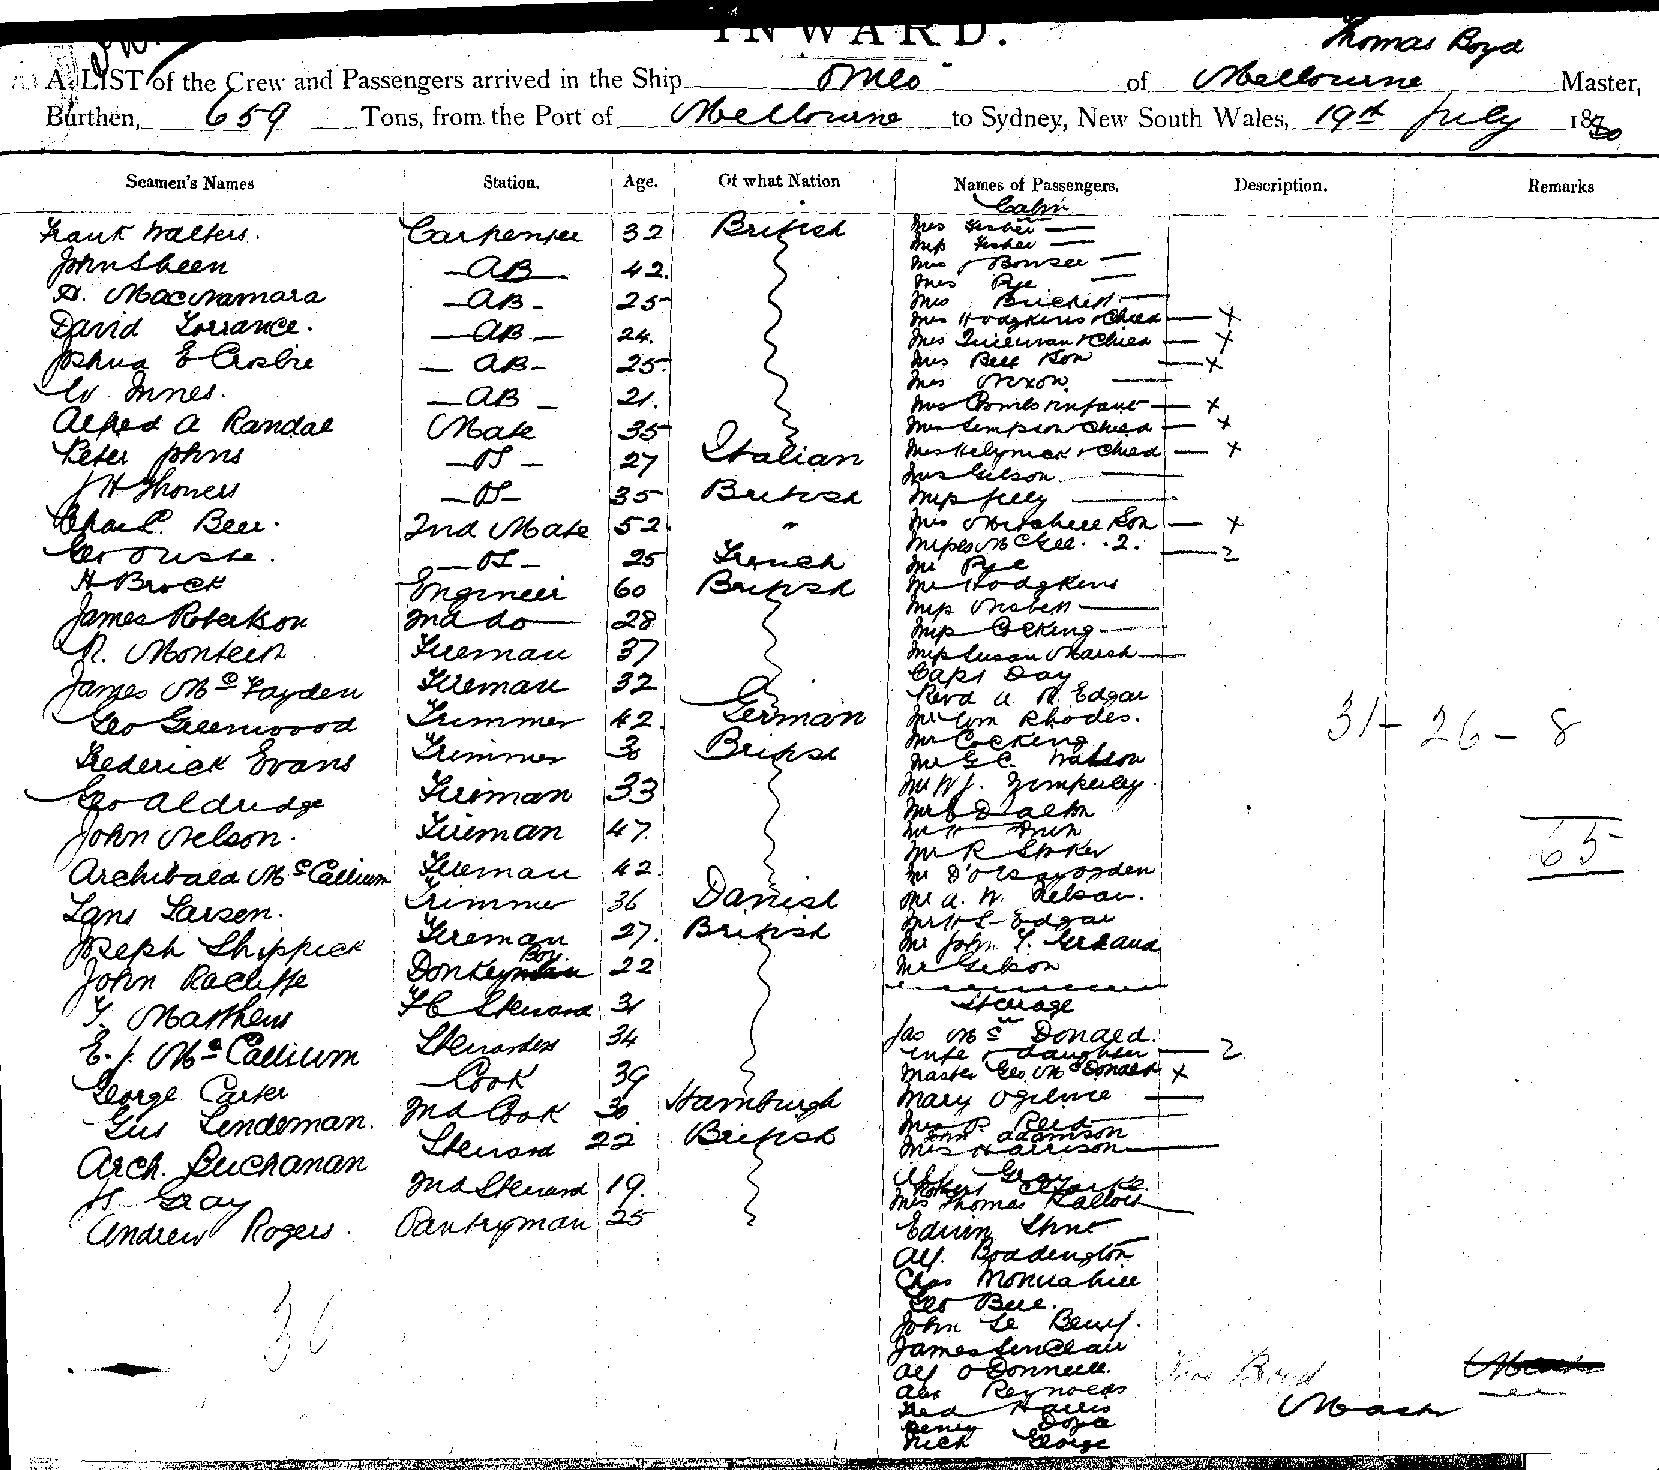 INWARD.
Thomas Boyd
A LIST of the Crew and Passengers arrived in the Ship Omeo of Melbourne Master,
Burthen, 659 Tons, from the Port of Melbourne to Sydney, New South Wales, 19th July 1880
Seamen's Names Station. Age. Of what Nation Names of Passengers. Description. Remarks
Frank Walters. Carpenter 32 British
John Sheen AB 42.
D. Macnamara AB 25
David Torrance. AB 24.
Joshua E Crosbie AB 25
W. Innes. AB 21.
Alfred A Randal Mate 35
Peter Johns OS 27 Italian
J H Showers OS 35 British
Chas C. Bell. 2nd Mate 52. "
Geo Ouste. OS 25 French
H Brock Engineer 60 British
James Robertson 2nd do 28
R. Monteith Fireman 37
James McFayden Fireman 32
Geo Greenwood Trimmer 42. German
Frederick Evans Trimmer 30 British
Geo Aldridge Fireman 33
John Nelson. Fireman 47.
Archibald McCallium Fireman 42.
Lans Larsen. Trimmer 36 Danish
Joseph Shippick Fireman 27. British
John Racliffe Donkey Boy 22
T. Matthews FC Steward 31
E. J. McCallium Stewardess 34
George Carter Cook 39
Gus Lindeman. 2nd Cook 30 Hamburgh
Arch. Buchanan Steward 22 British
H Gray 2nd Steward 19.
Andrew Rogers. Pantryman 25
36
Cabin
Mrs Fisher
Miss Fisher
Mrs Bowser
Mrs Pye
Mrs
Mrs Hodgkins & Child x
Mrs & Child x
Mrs Bell & Son x
Mrs Nixon
Mrs & Infant x
Mrs Simpson & Child x
Mrs & Child x
Mrs Gilson
Miss Jelly
Mrs Mitchell & Son x
Misses McKee. 2. 2
Mr Pye
Mr Hodgkins
Miss Nisbett
Miss Cocking
Miss Susan Marsh
Capt Day
Revd A. R. Edgar
Mr Wm Rhodes.
Mr Cocking
Mr G. C. Watson
Mr W J.
Mr Dalton
Mr
Mr R Stoker
Mr
Mr A. W. Nelson.
Mr Edgar
Mr John T.
Mr Gilson
Steerage
Jas McDonald.
wife & daughter 2
Master Geo McDonald x
Mary Ogilvie
Mrs P. Reid
Thos Adamson
Mrs Harrison
Gray
Robert Clarke
Mrs Thomas
Edwin
Alf. Boddington
Chas
Geo Bell.
John Le
James Sinclair
Alf O'Donnell.
Alex Reynolds
Fred Harris
Henry Doyle
Nick George
31 - 26 - 8
65
Thos Boyd
Master